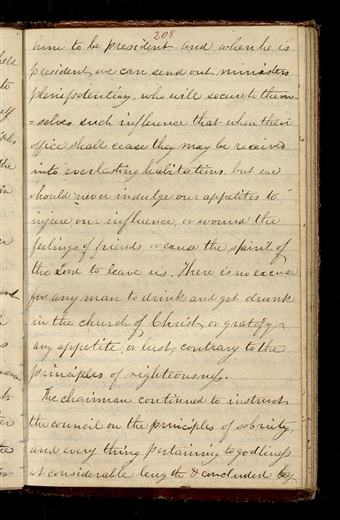 208
him to be president and when he is
president, we can send out ministers
plenipotentiary, who will secure to them-
=selves such influence that when their
office shall cease they may be received
into everlasting habitations. but we
should never indulge our appetites to
injure our influence, or wound the
feelings of friends, or cause the spirit of
the Lord to leave us. There is no excuse
for any man to drink and get drunk
in the church of Christ, or gratify
any appetite, or lust, contrary to the
principles of righteousness.
The chairman continued to instruct
the council on the principles of sobriety,
and every thing pertaining to godliness
at considerable length & concluded by